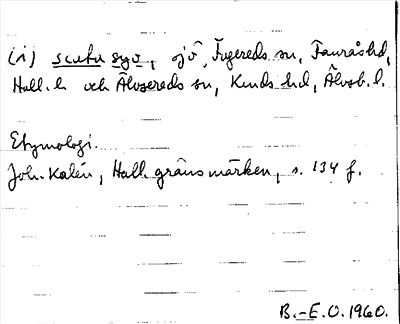 (i) scuta syo, sjö, Fagereds sn, Faurås hd,
Hall. l. och Älvsereds sn, Kinds hd, Älvsb. l.
Etymologi.
Joh. Kalén, Hall. gränsmärken, s. 134 f.
B.-E.O. 1960.